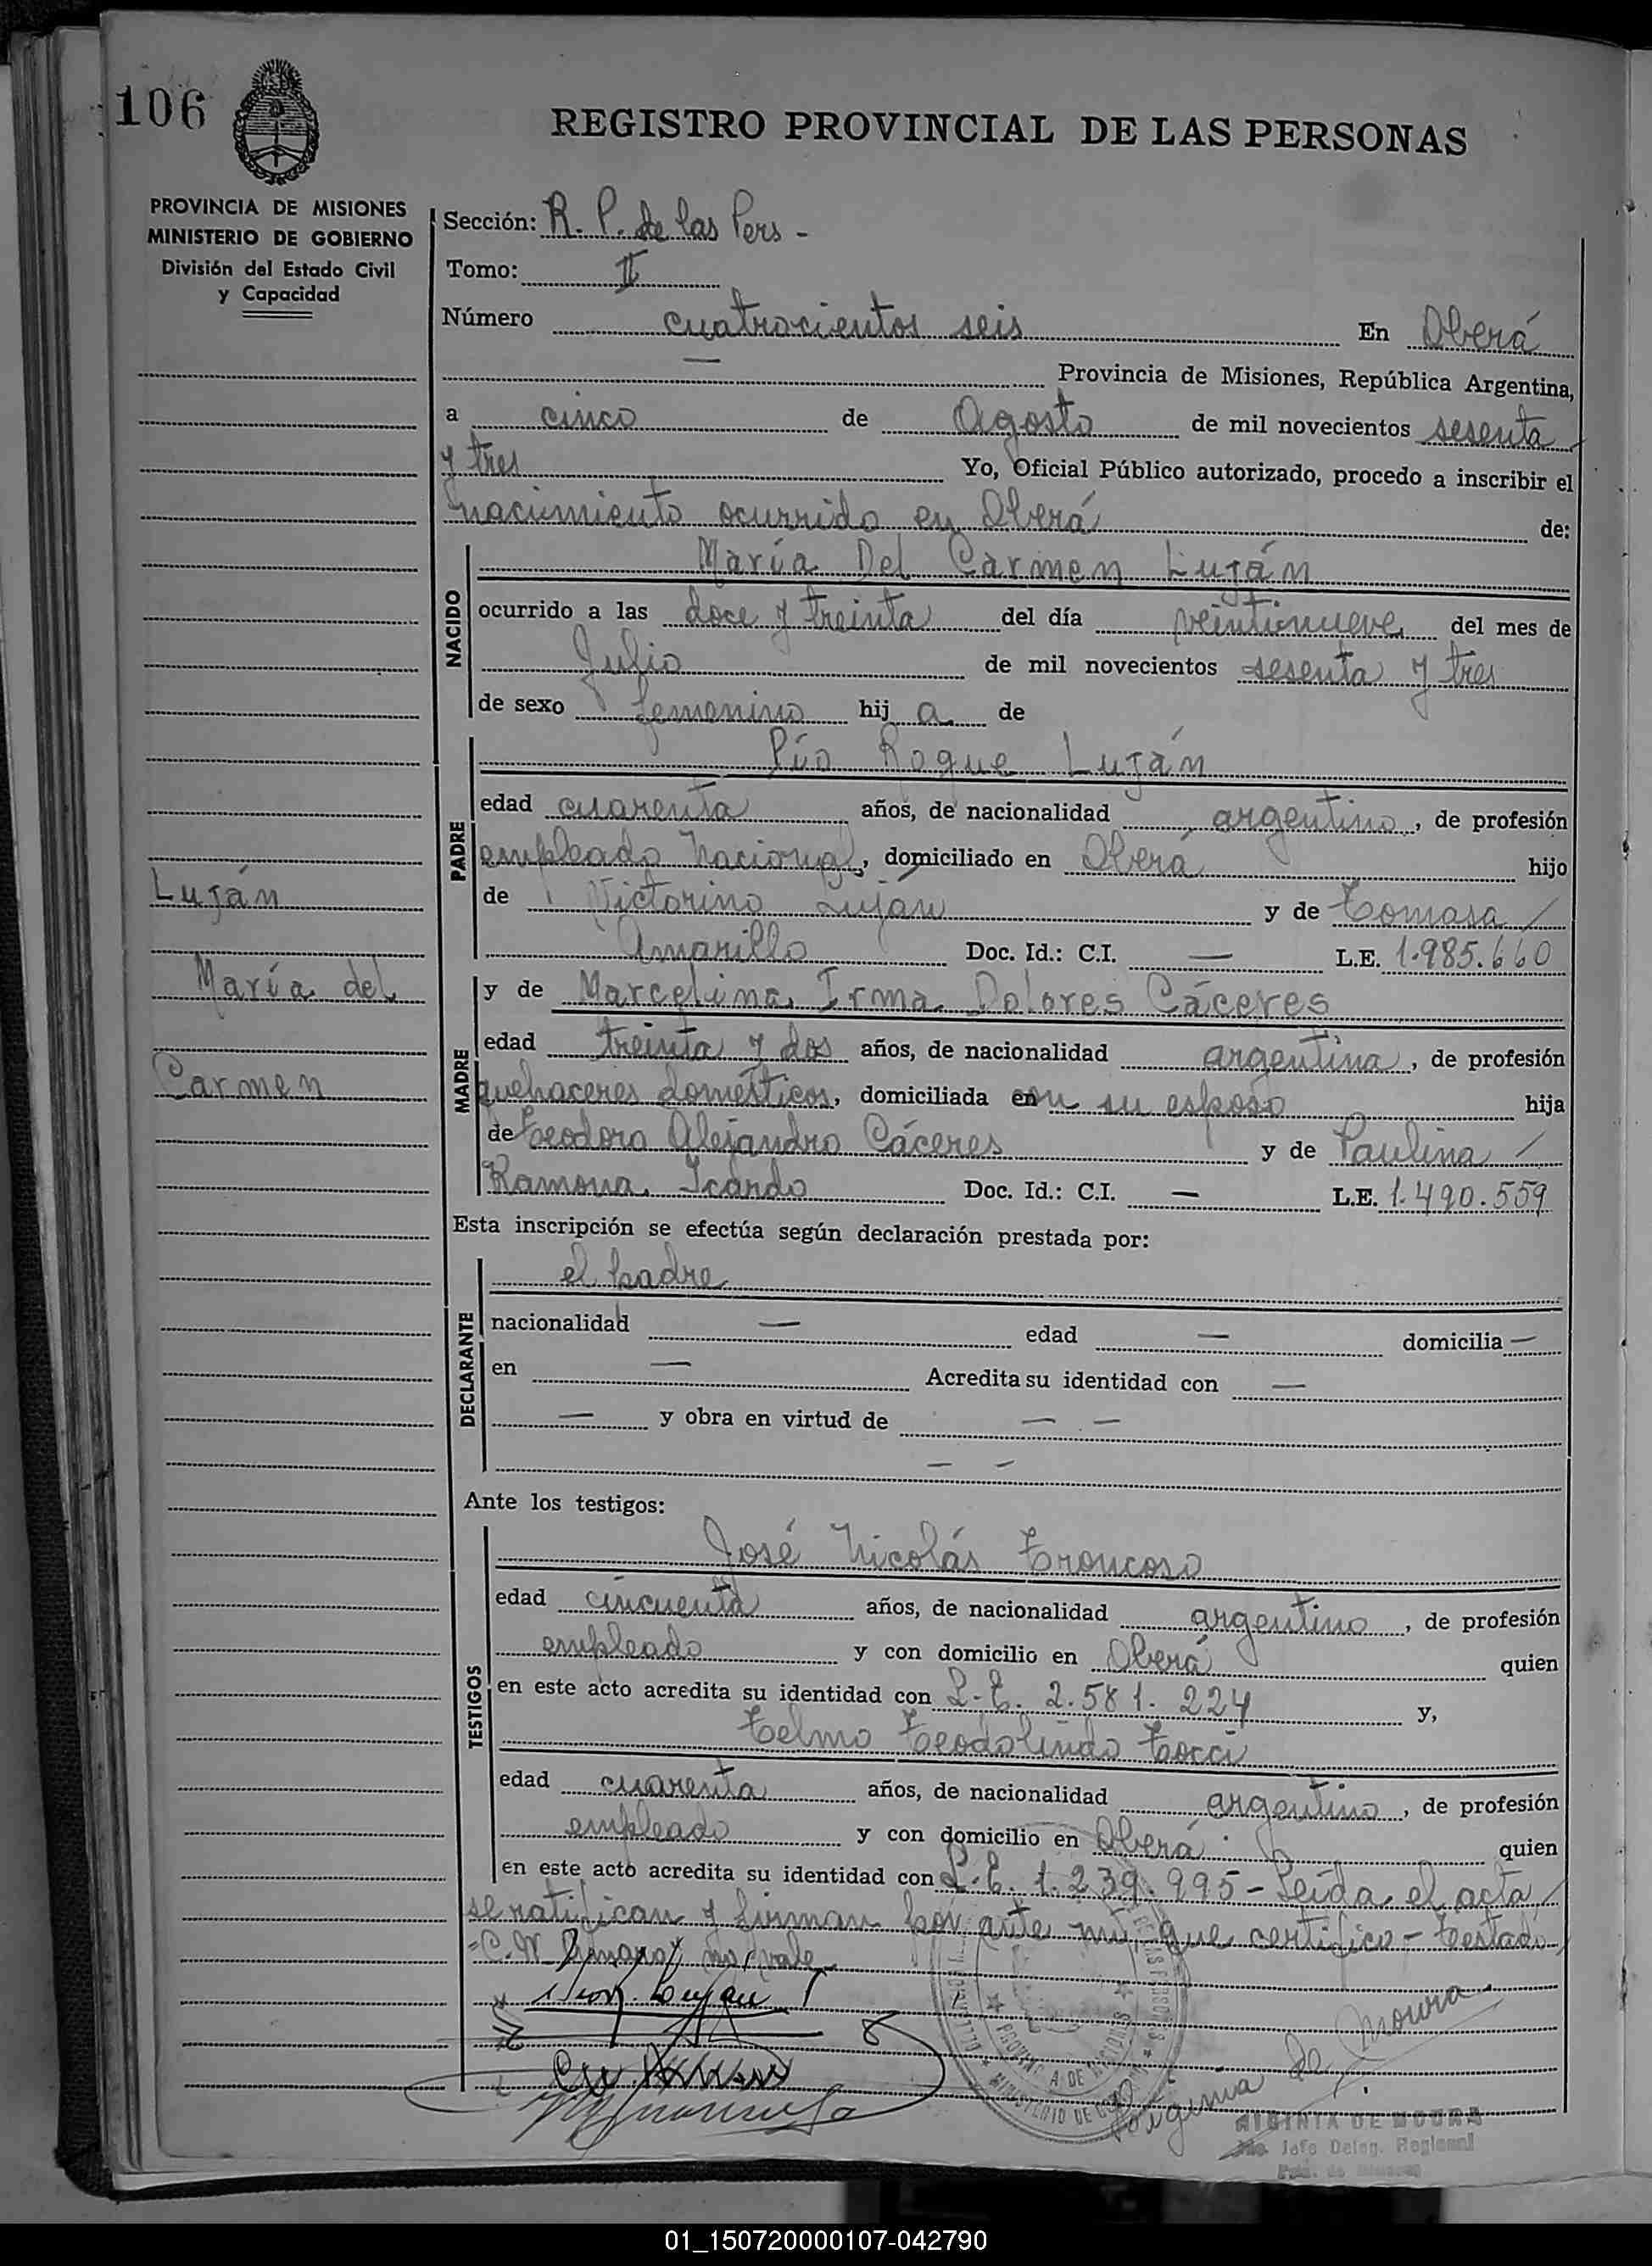 106
REGISTRO PROVINCIAL DE LAS PERSONAS
PROVINCIA DE MISIONES
MINISTERIO DE GOBIERNO
División del Estado Civil
y Capacidad
Sección: R. P. de las Pers -
Tomo: II
Número cuatrocientos seis En Oberá
— Provincia de Misiones, República Argentina,
a cinco de Agosto de mil novecientos sesenta
y tres Yo, Oficial Público autorizado, procedo a inscribir el
nacimiento ocurrido en Oberá de:
NACIDO
María Del Carmen Luján
ocurrido a las doce y treinta del día veintinueve del mes de
Julio de mil novecientos sesenta y tres
de sexo femenino hij a de
PADRE
Pío Roque Luján
edad cuarenta años, de nacionalidad argentino, de profesión
empleado Nacional, domiciliado en Oberá hijo
de Victorino Luján y de Tomasa /
Amarillo Doc. Id.: C.I. — L.E. 1.985.660
Luján
María del
Carmen
MADRE
y de Marcelina Irma Dolores Cáceres
edad treinta y dos años, de nacionalidad argentina, de profesión
quehaceres domésticos, domiciliada con su esposo hija
de Teodoro Alejandro Cáceres y de Paulina /
Ramona Icardo Doc. Id.: C.I. — L.E. 1.490.559
Esta inscripción se efectúa según declaración prestada por:
DECLARANTE
el padre
nacionalidad — edad — domicilia —
en — Acredita su identidad con —
— y obra en virtud de — —
— —
Ante los testigos:
TESTIGOS
José Nicolás Troncoso
edad cincuenta años, de nacionalidad argentino, de profesión
empleado y con domicilio en Oberá quien
en este acto acredita su identidad con L.E. 2.581.224 y,
Telmo Teodolindo Tocci
edad cuarenta años, de nacionalidad argentino, de profesión
empleado y con domicilio en Oberá quien
en este acto acredita su identidad con L.E. 1.239.995 - Leída el acta /
se ratifican y firman por ante mi, que certifico - Testado
no vale
Luján
PROVINCIA DE MISIONES
MINISTERIO DE
Higinia de Moura
HIGINIA DE MOURA
Jefe Deleg. Regional
01_150720000107-042790